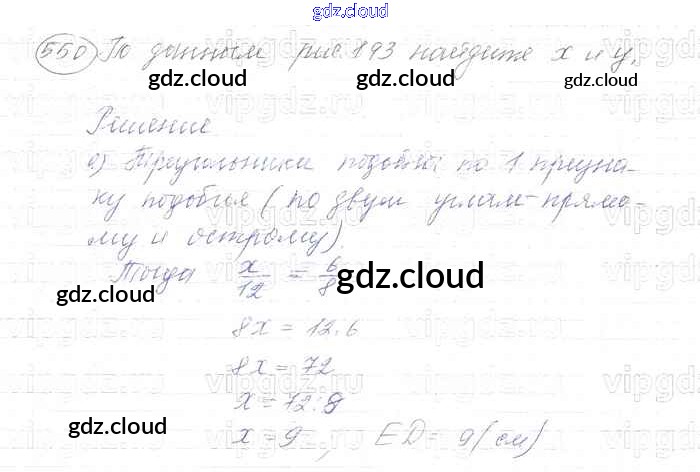 gdz.cloud
550 По данным рис 193 найдите x и y.
gdz.cloud gdz.cloud gdz.cloud
Решение
а) Треугольники подобны по 1 призна-
gdz.cloud gdz.cloud
ку подобия (по двум углам-прямо-
му и острому).
Тогда x/12 = 6/8
gdz.cloud
gdz.cloud
8x = 12·6
8x = 72
vipgdz.ru
x = 72:8
gdz.cloud gdz.cloud
x = 9, ED = 9(см)